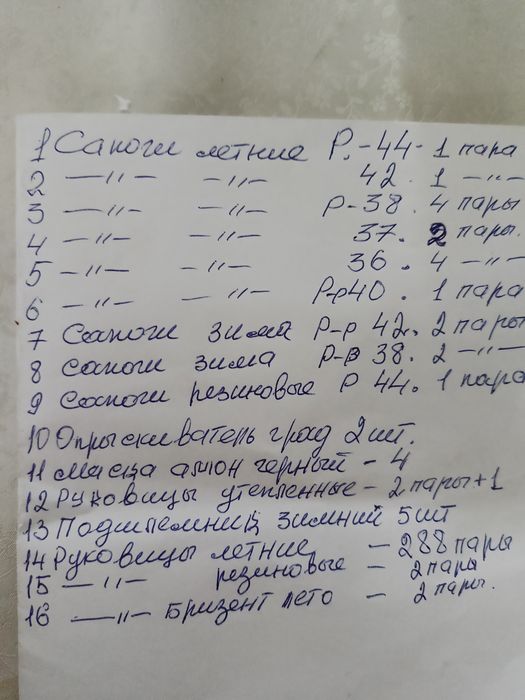 1 Сапоги летние Р.-44-1 пара
2 —〃— —〃— 42. 1 —〃—
3 —〃— —〃— Р-38. 4 пары
4 —〃— —〃— 37. 2 пары.
5 —〃— —〃— 36. 4 —〃—
6 —〃— —〃— Р-р40. 1 пара
7 Сапоги зима Р-р 42. 2 пары
8 сапоги зима р-р 38. 2 —〃—
9 Сапоги резиновые Р 44. 1 пара
10 Опрыскиватель град 2 шт.
11 маска черный - 4
12 Руковицы утепленные - 2 пары+1
13 Подшлемник зимний 5 шт
14 Руковицы летние - 288 пары
15 —〃— резиновые - 2 пары
16 —〃— Бризент лето - 2 пары.